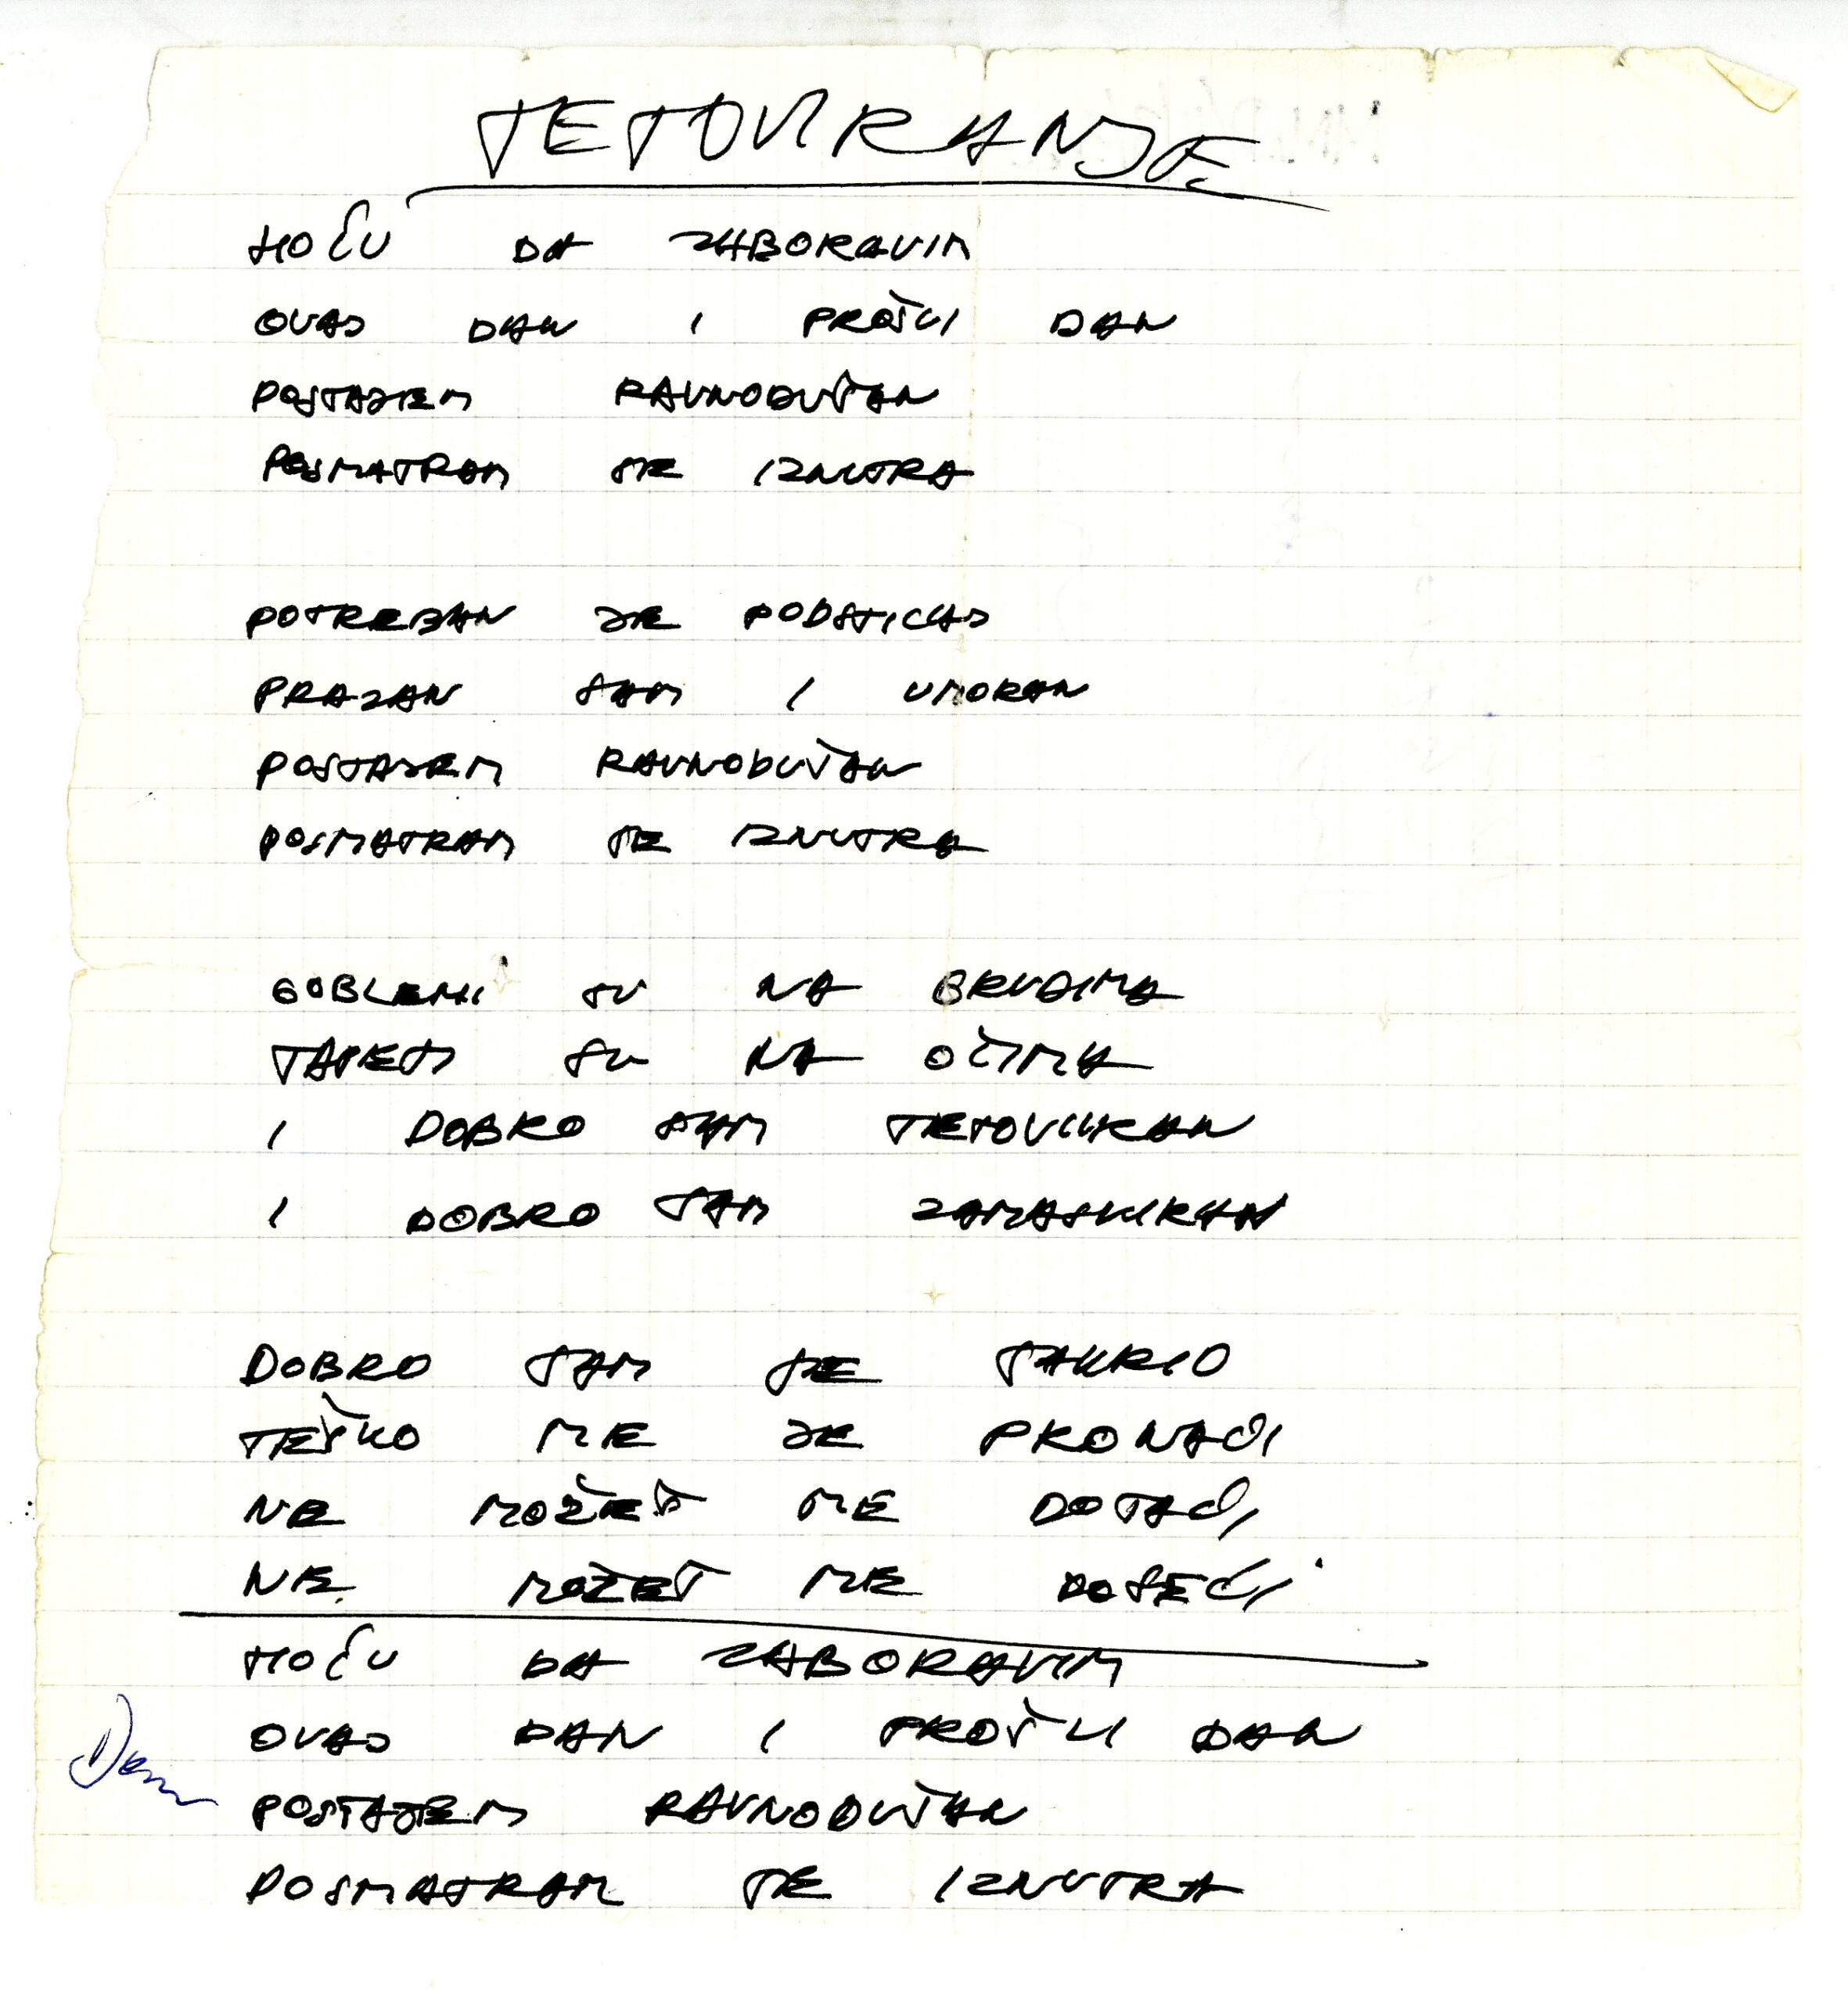 TETOVIRANJE
HOĆU DA ZABORAVIM
OVAJ DAN I PROŠLI DAN
POSTAJEM RAVNODUŠAN
POSMATRAM SE IZNUTRA
POTREBAN JE PODSTICAJ
PRAZAN SAM I UMORAN
POSTAJEM RAVNODUŠAN
POSMATRAM SE IZNUTRA
GOBLENI SU NA GRUDIMA
TAPETI SU NA OČIMA
I DOBRO SAM TETOVIRAN
I DOBRO SAM ZAMASKIRAN
DOBRO SAM SE SAKRIO
TEŠKO ME JE PRONAĆI
NE MOŽEŠ ME DOTAĆI
NE MOŽEŠ ME DOSEĆI
HOĆU DA ZABORAVIM
OVAJ DAN I PROŠLI DAN
POSTAJEM RAVNODUŠAN
POSMATRAM SE IZNUTRA